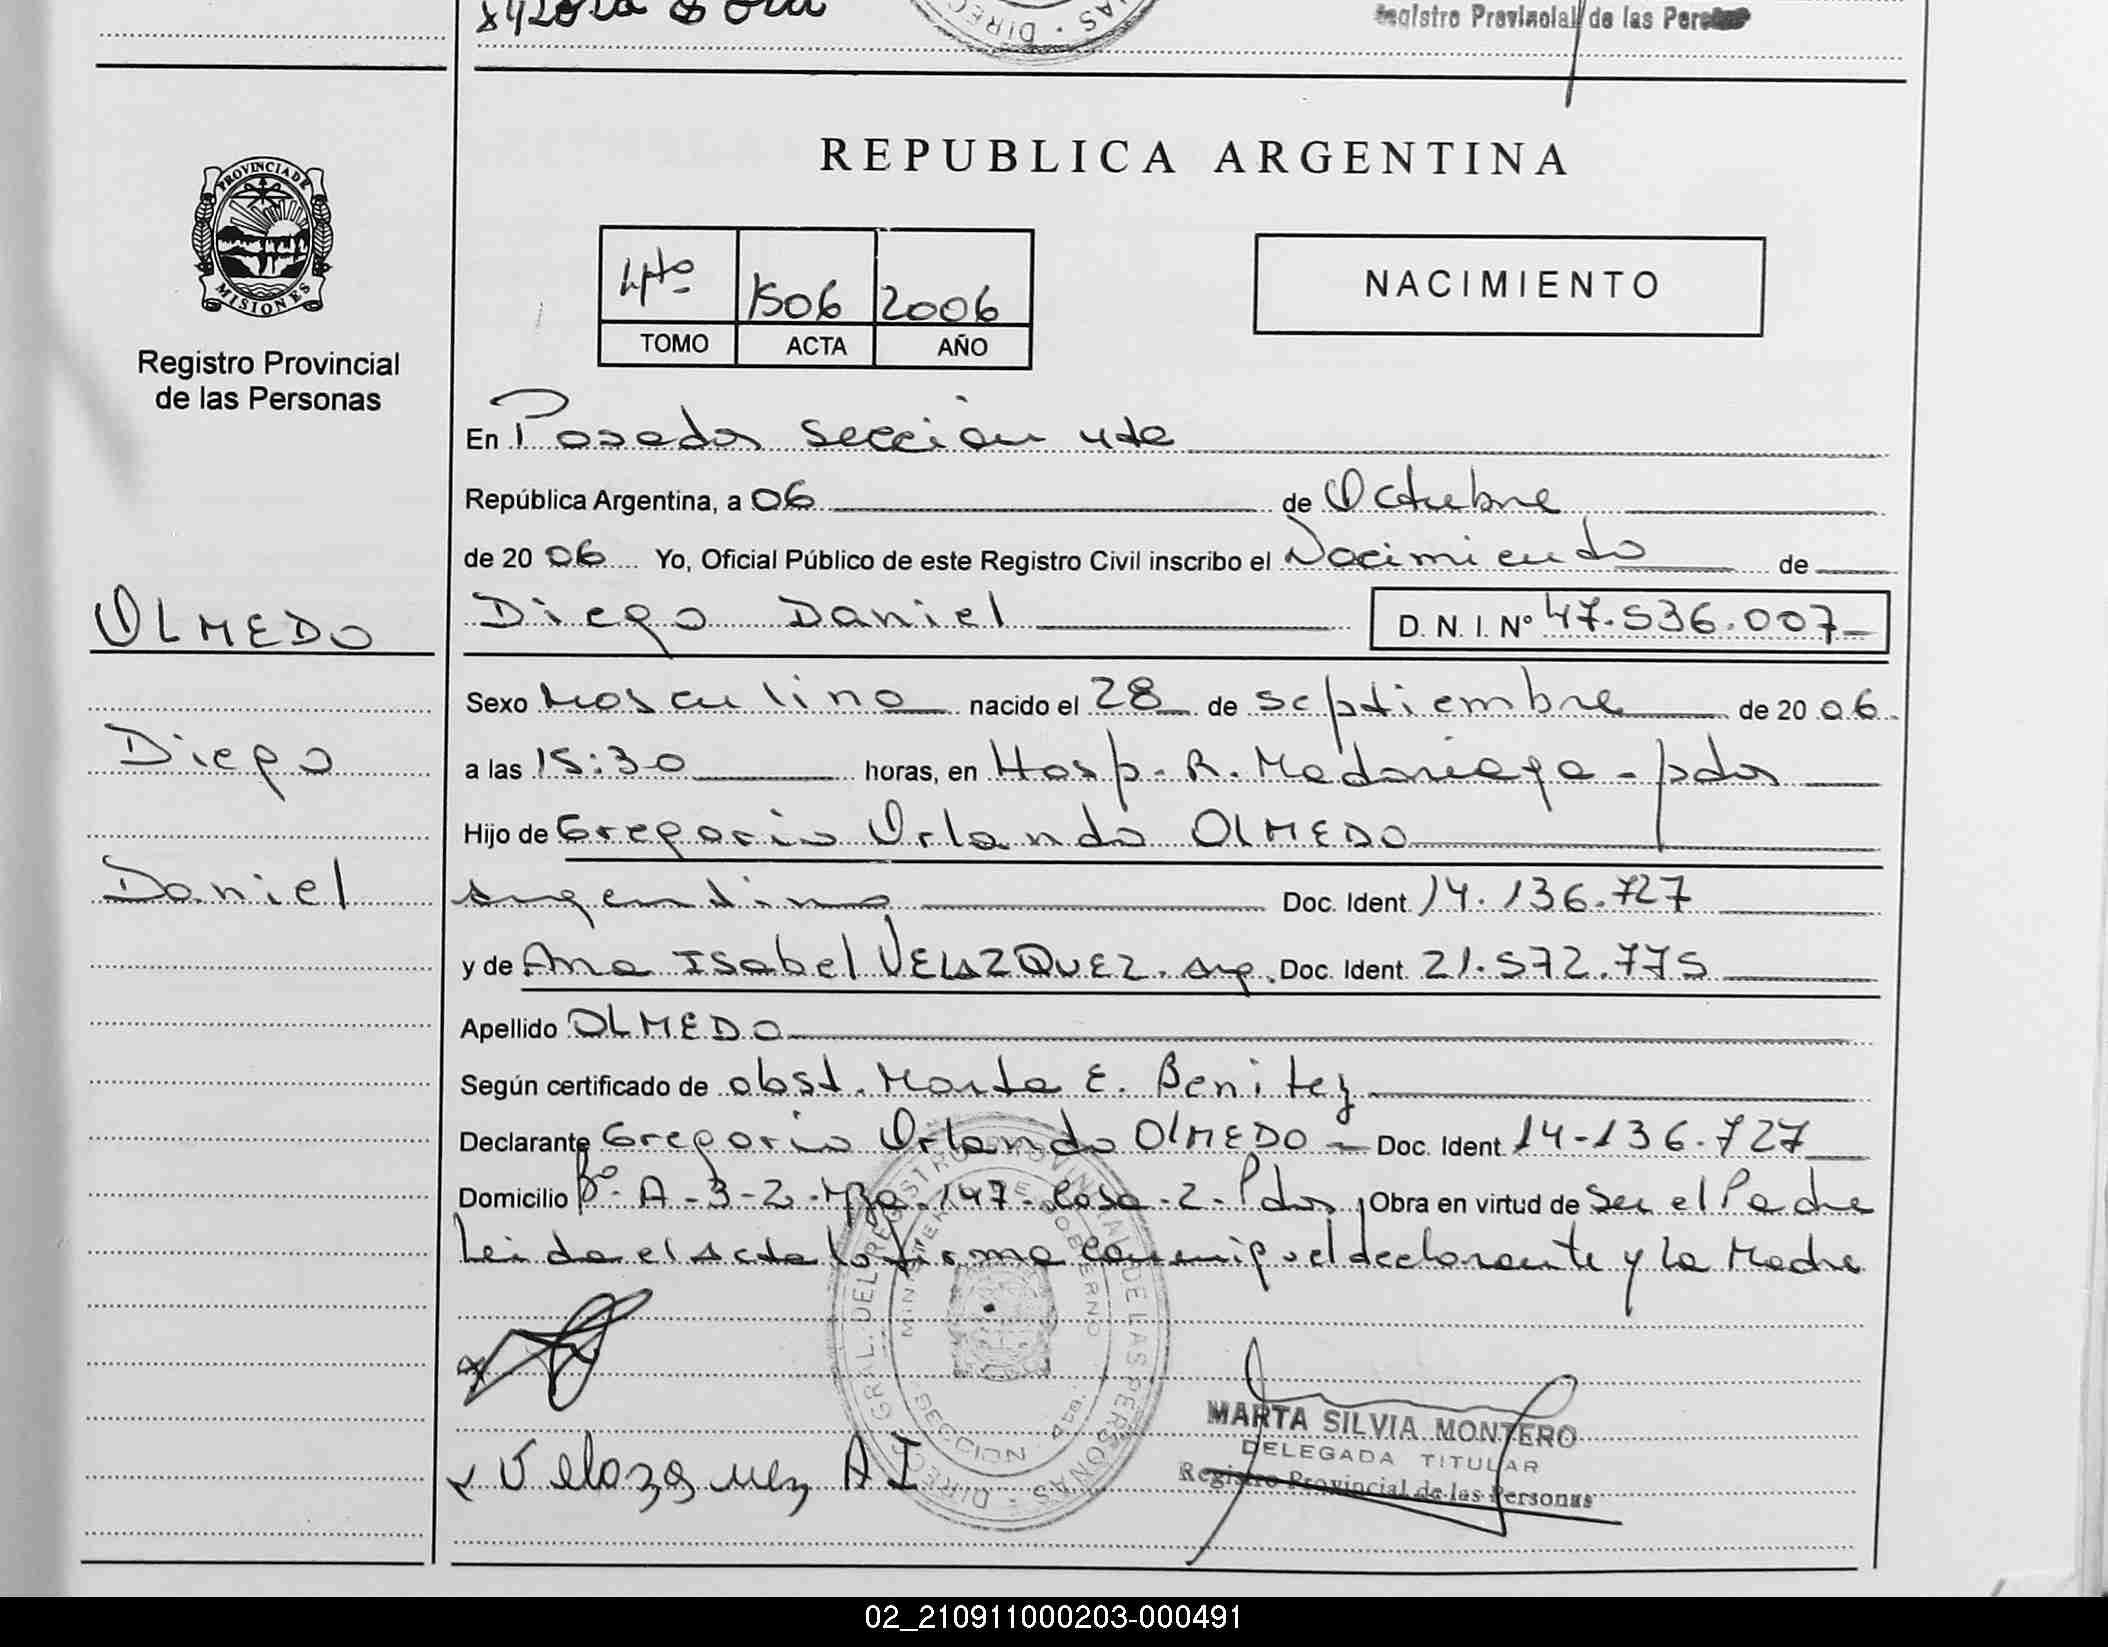 Registro Provincial de las Personas
PROVINCIA DE
MISIONES
Registro Provincial
de las Personas
REPUBLICA ARGENTINA
4to 1506 2006
TOMO ACTA AÑO
NACIMIENTO
En Posadas sección 4ta
República Argentina, a 06 de Octubre
de 20 06 Yo, Oficial Público de este Registro Civil inscribo el Nacimiento de
Diego Daniel D. N. I. Nº 47.536.007
OLMEDO
Diego
Daniel
Sexo Masculino nacido el 28 de septiembre de 20 06
a las 15:30 horas, en Hosp. R. Madariaga - pdas
Hijo de Gregorio Orlando OLMEDO
argentino Doc. Ident. 14.136.727
y de Ana Isabel VELAZQUEZ. arg. Doc. Ident. 21.572.775
Apellido OLMEDO
Según certificado de obst. Marta E. Benitez
Declarante Gregorio Orlando OLMEDO - Doc. Ident. 14-136.727
Domicilio Bº. A-3-2-Mza. 147-Casa-2-Pdas Obra en virtud de ser el Padre
Leida el Acta la firma conmigo el declarante y la Madre
DIREC. GRAL. DEL REGISTRO PROVINCIAL DE LAS PERSONAS
MINISTERIO DE GOBIERNO
SECCION 4ta.
Velazquez A I
MARTA SILVIA MONTERO
DELEGADA TITULAR
Registro Provincial de las Personas
02_210911000203-000491